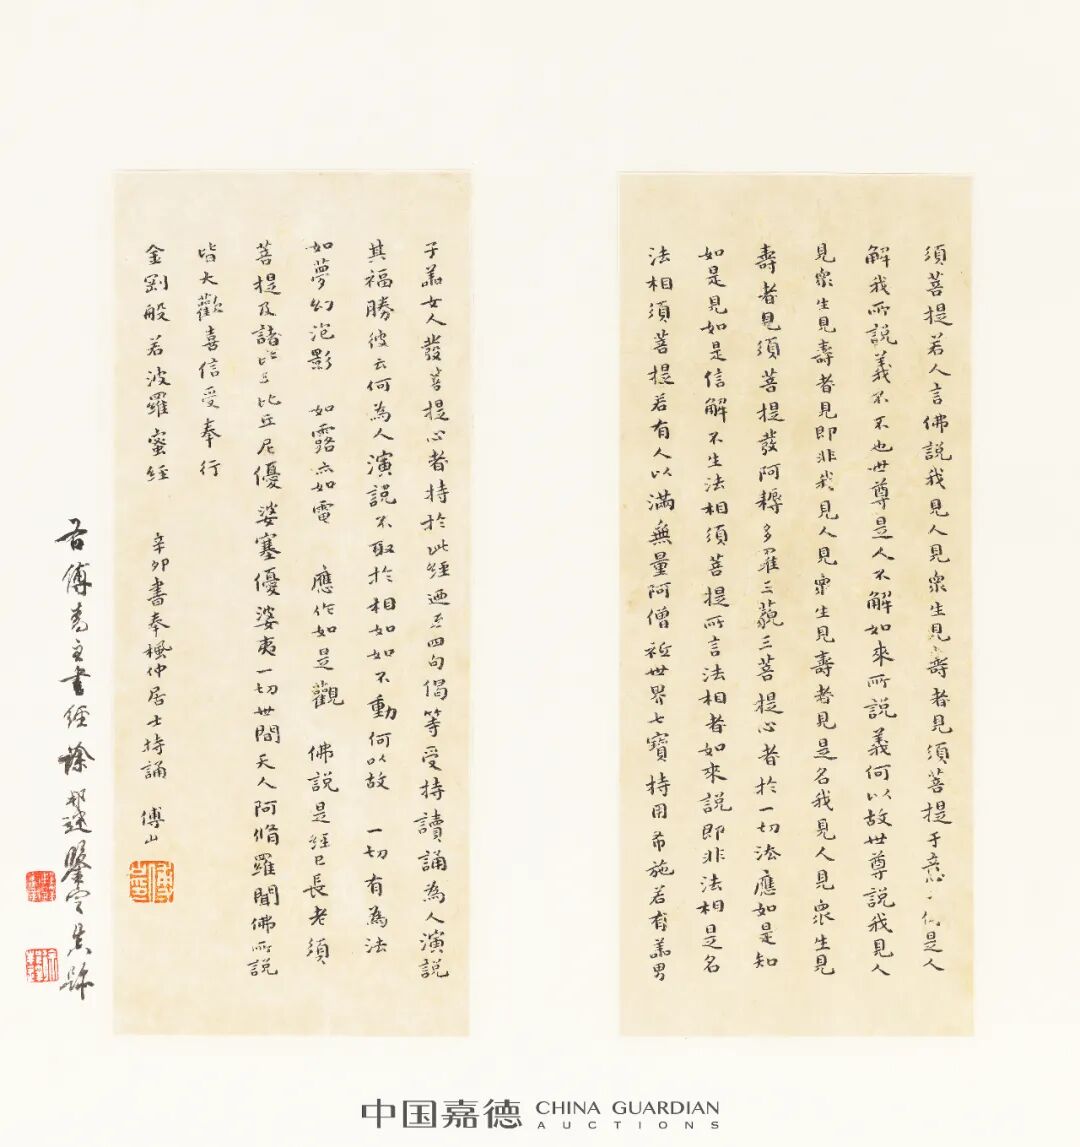 須菩提若人言佛說我見人見眾生見壽者見須菩提于意 何是人
解我所說義不不也世尊是人不解如來所說義何以故世尊說我見人
見眾生見壽者見即非我見人見眾生見壽者見是名我見人見眾生見
壽者見須菩提發阿耨多羅三藐三菩提心者於一切法應如是知
如是見如是信解不生法相須菩提所言法相者如來說即非法相是名
法相須菩提若有人以滿無量阿僧祇世界七寶持用布施若有善男
子善女人發菩提心者持於此經迺至四句偈等受持讀誦為人演説
其福勝彼云何為人演説不取於相如如不動何以故 一切有為法
如夢幻泡影 如露亦如電 應作如是觀 佛說是經已長老須
菩提及諸比丘比丘尼優婆塞優婆夷一切世間天人阿脩羅聞佛所説
皆大歡喜信受奉行
金剛般若波羅蜜經
辛卯書奉楓仲居士持誦 傅山
傅青主書經 徐邦達鑒定真跡
中国嘉德 CHINA GUARDIAN
AUCTIONS